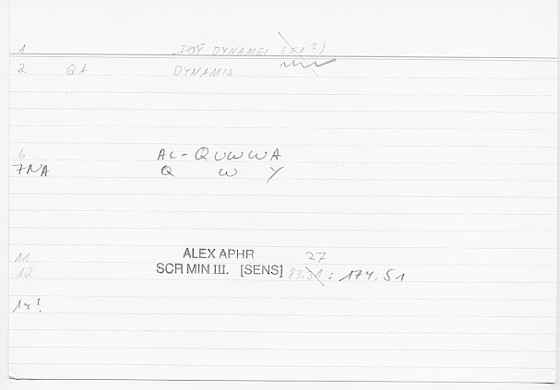 1 DYNAMEI
2 QA DYNAMIS
6 AL-QUWWA
7NA Q W Y
11 ALEX APHR 27
12 SCR MIN III. [SENS] 83.31 : 174,51
14!